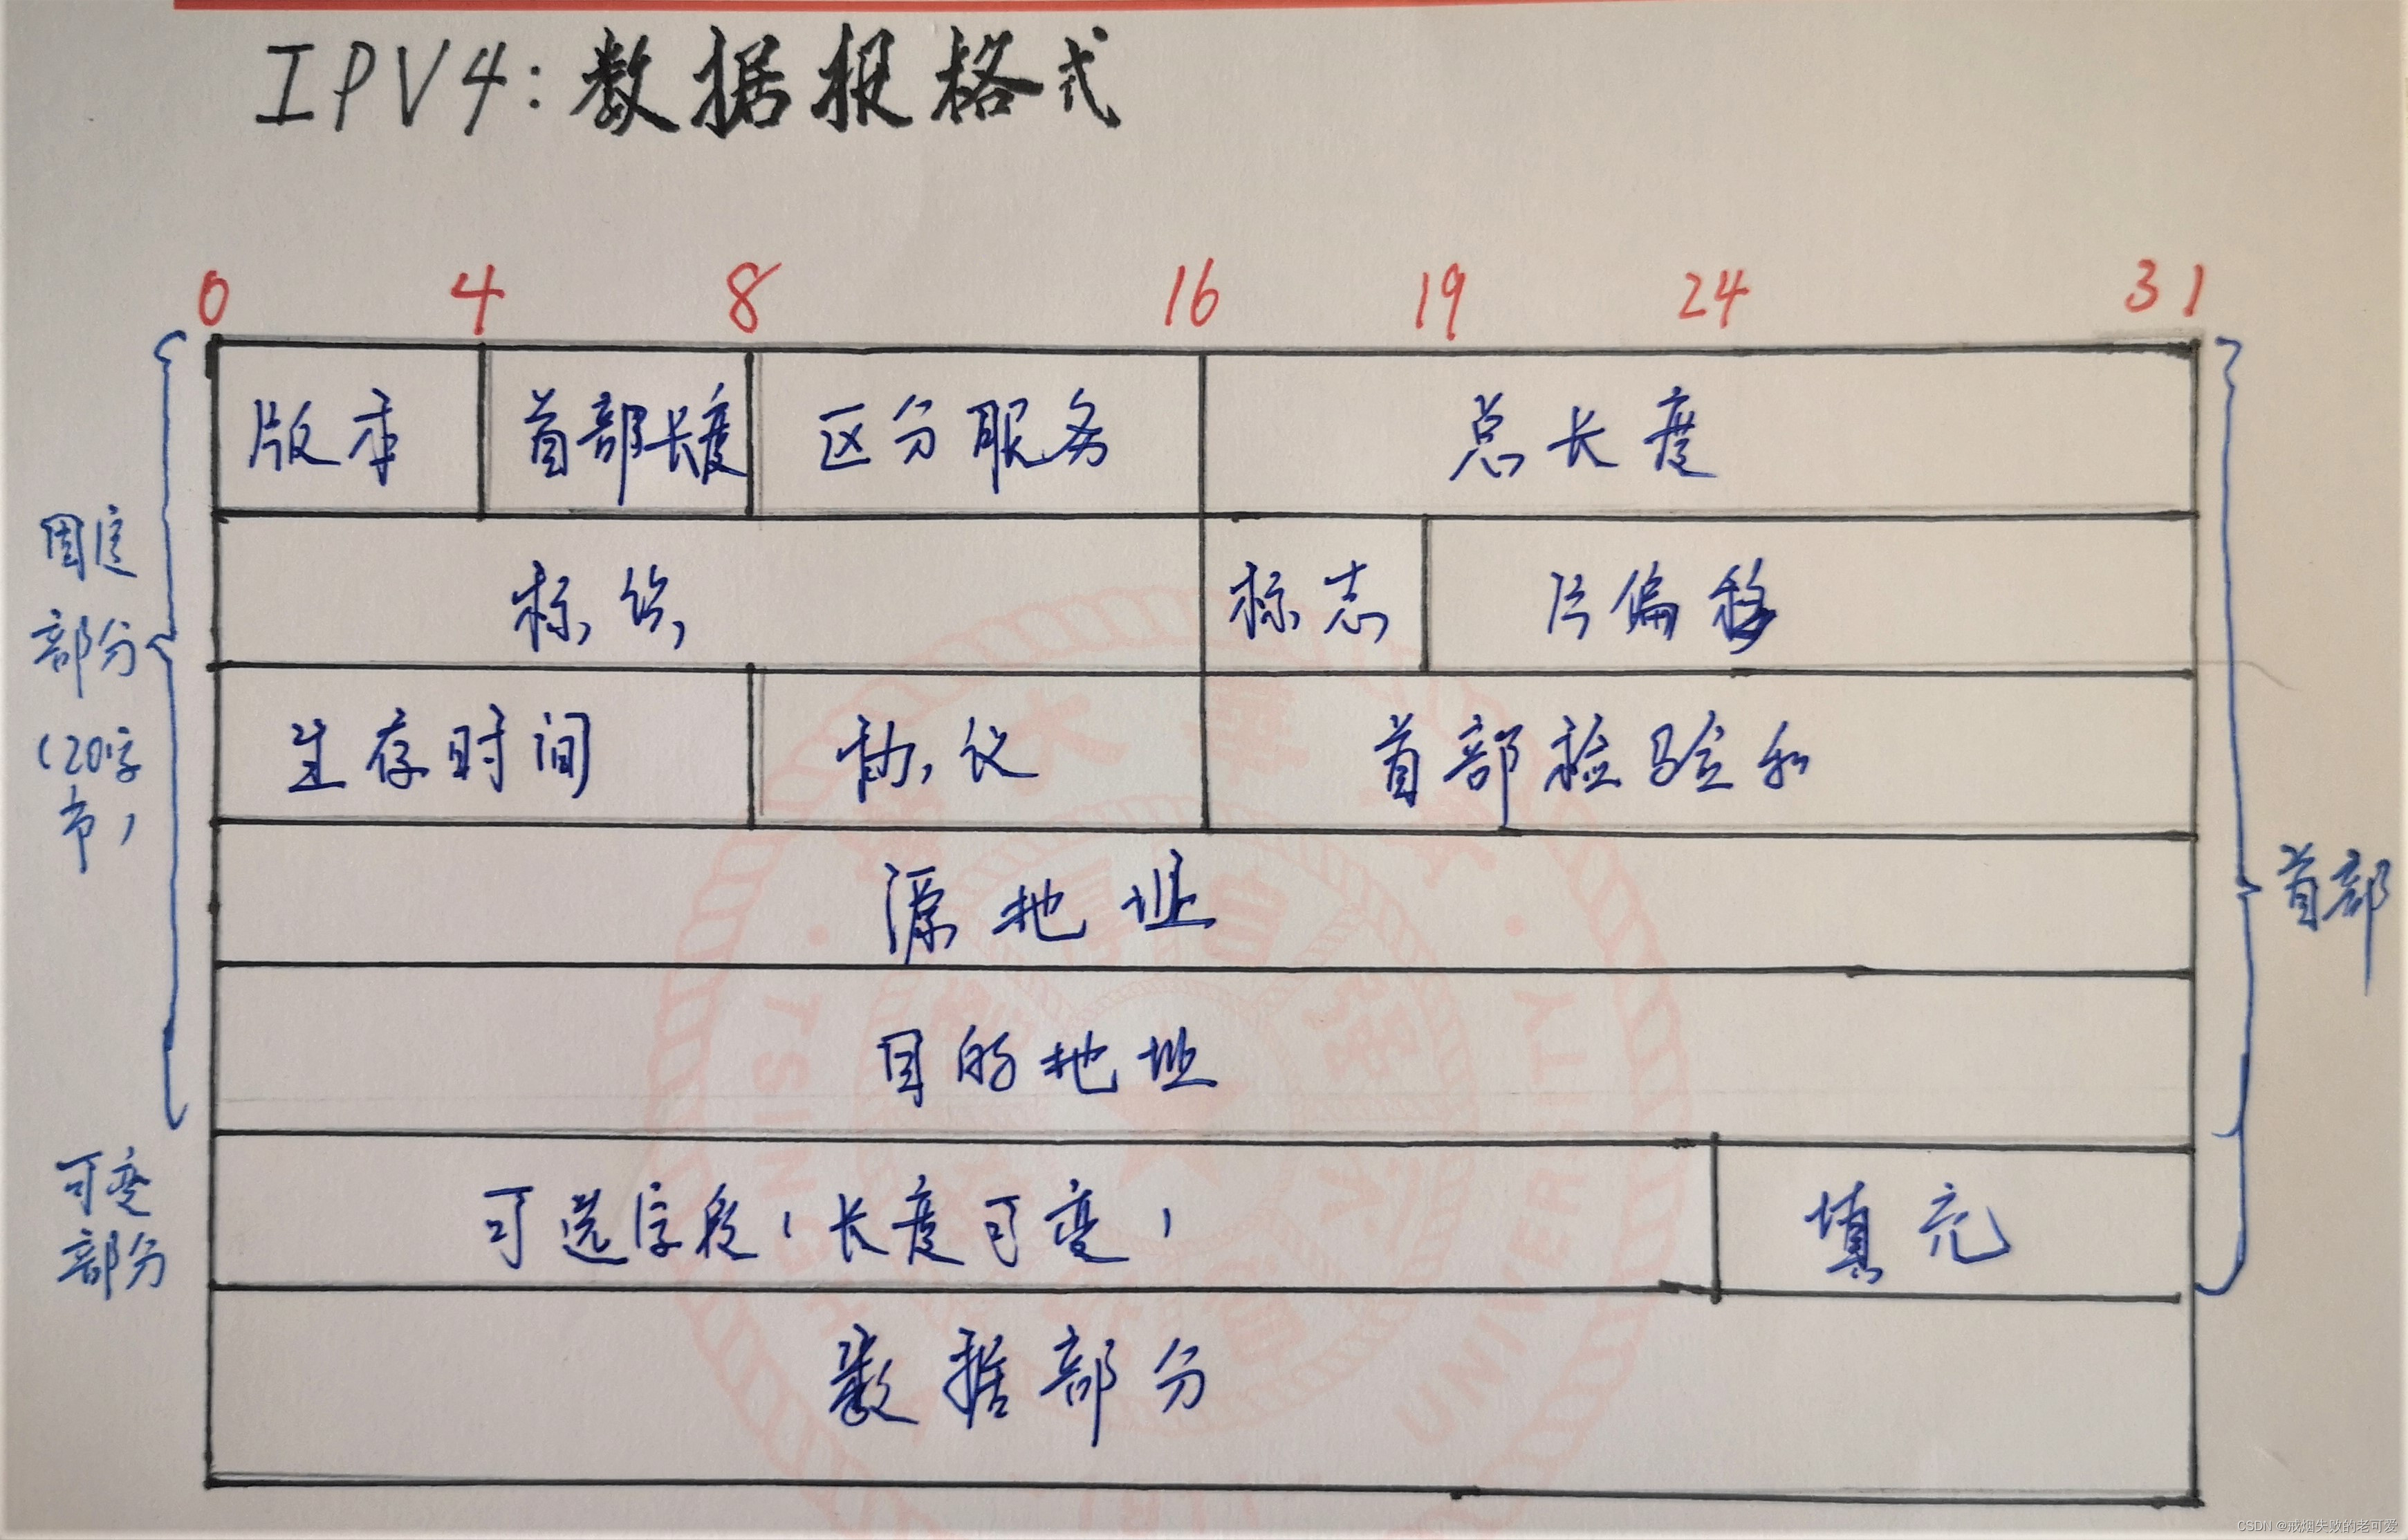 IPV4:数据报格式
0 4 8 16 19 24 31
版本 首部长度 区分服务 总长度
标识 标志 片偏移
生存时间 协议 首部检验和
源地址
目的地址
可选字段(长度可变)
填充
数据部分
固定
部分
(20字
节)
可变
部分
首部
TSINGHUA UNIVERSITY
CSDN @戒烟失败的老可爱